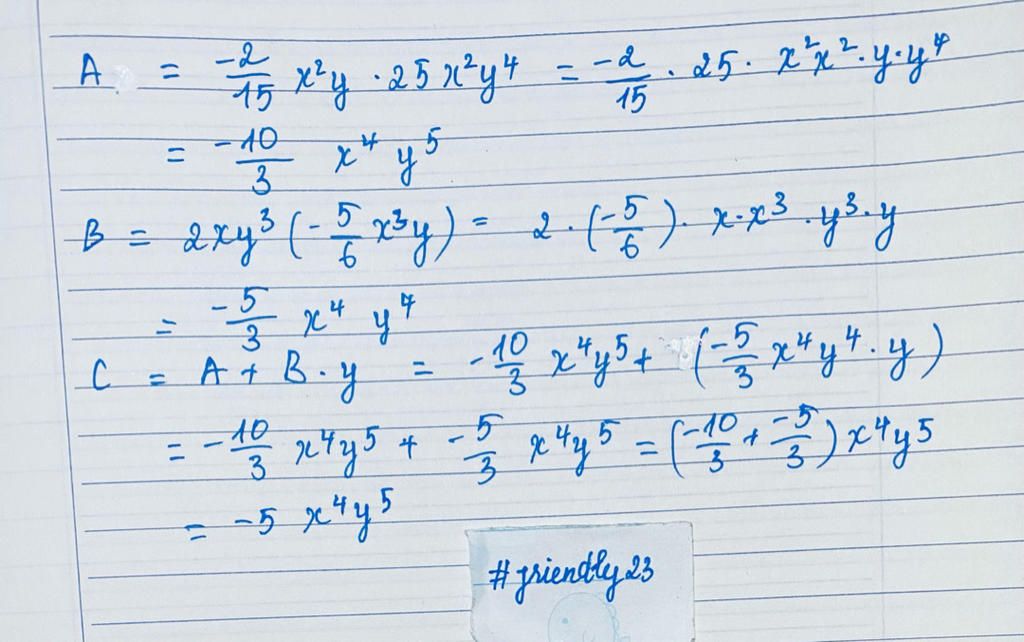 A = -2/15 x²y · 25x²y⁴ = -2/15 · 25 · x²x² · y · y⁴
= -10/3 x⁴ y⁵
B = 2xy³ (-5/6 x³y) = 2 · (-5/6) · x · x³ · y³ · y
= -5/3 x⁴ y⁴
C = A + B · y = -10/3 x⁴y⁵ + (-5/3 x⁴y⁴ · y)
= -10/3 x⁴y⁵ + -5/3 x⁴y⁵ = (-10/3 + -5/3) x⁴y⁵
= -5 x⁴y⁵
#friendly23